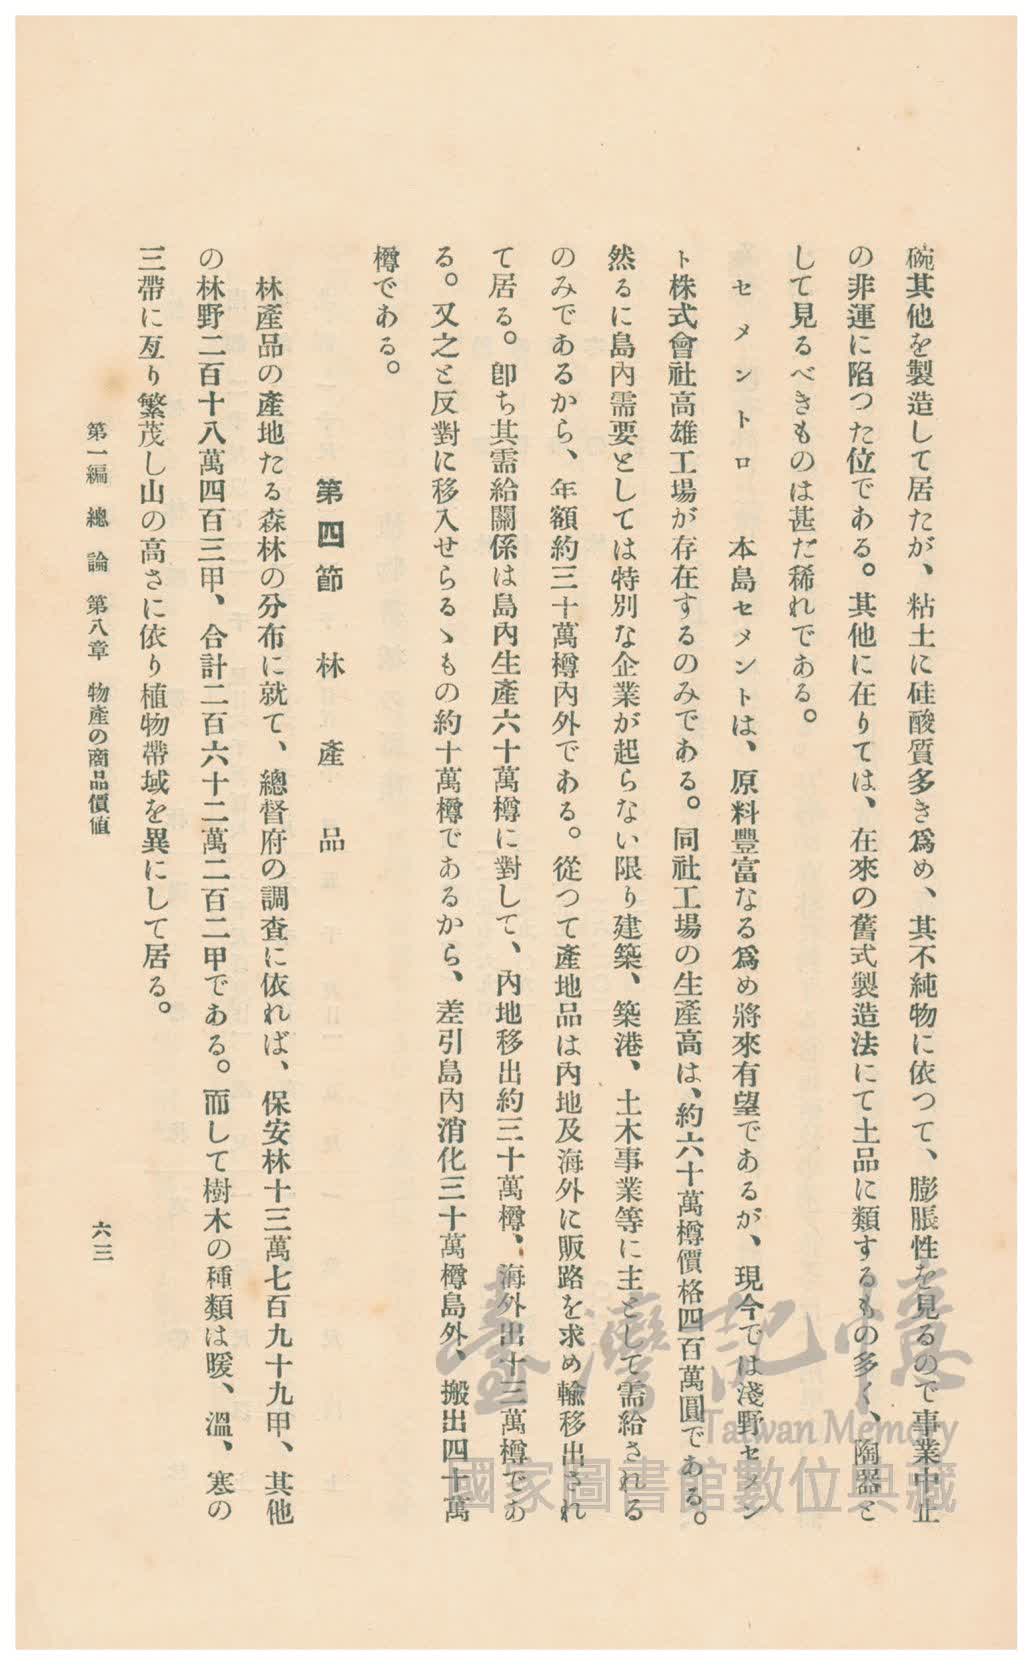 碗其他を製造して居たが、粘土に硅酸質多き爲め、其不純物に依つて、膨脹性を見るので事業中止
の非運に陷つた位である。其他に在りては、在來の舊式製造法にて土品に類するもの多く、陶器と
して見るべきものは甚だ稀れである。
セメントロ　本島セメントは、原料豐富なる爲め將來有望であるが、現今では淺野セメン
ト株式會社高雄工場が存在するのみである。同社工場の生產高は、約六十萬樽價格四百萬圓である。
然るに島內需要としては特別な企業が起らない限り建築、築港、土木事業等に主として需給される
のみであるから、年額約三十萬樽內外である。從つて產地品は內地及海外に販路を求め輸移出され
て居る。卽ち其需給關係は島內生產六十萬樽に對して、內地移出約三十萬樽、海外出十三萬樽であ
る。又之と反對に移入せらるゝもの約十萬樽であるから、差引島內消化三十萬樽島外、搬出四十萬
樽である。
第四節　林產品
林產品の產地たる森林の分布に就て、總督府の調査に依れば、保安林十三萬七百九十九甲、其他
の林野二百十八萬四百三甲、合計二百六十二萬二百二甲である。而して樹木の種類は暖、溫、寒の
三帶に亙り繁茂し山の高さに依り植物帶域を異にして居る。
第一編　總論　第八章　物產の商品價値
六三
臺灣記憶
Taiwan Memory
國家圖書館數位典藏